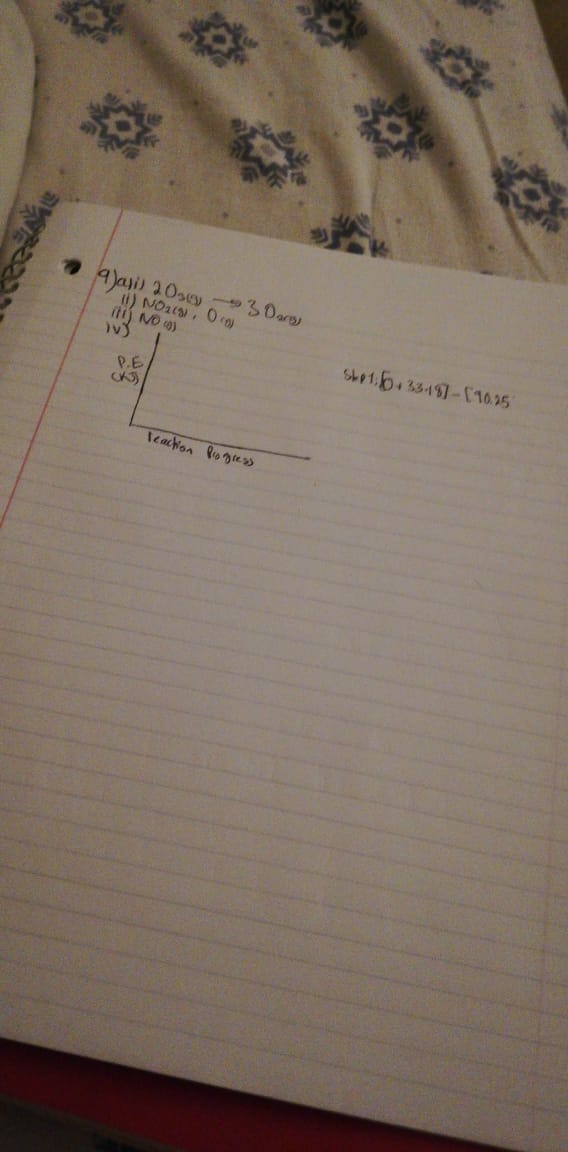 9)a)i) 2O3(g) → 3O2(g)
ii) NO2(g), O(g)
iii) NO(g)
iv)
P.E
(kJ)
Reaction Progress
Step 1: [0 + 33.18] - [90.25